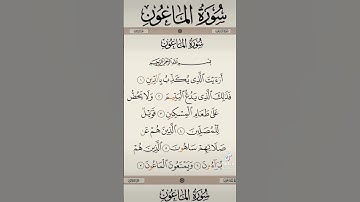 سُورَةُ المَاعُونِ
سُورَةُ المَاعُونِ
بِسْمِ اللَّهِ الرَّحْمَٰنِ الرَّحِيمِ
أَرَءَيْتَ ٱلَّذِى يُكَذِّبُ بِٱلدِّينِ ١
فَذَٰلِكَ ٱلَّذِى يَدُعُّ ٱلْيَتِيمَ ٢ وَلَا يَحُضُّ
عَلَىٰ طَعَامِ ٱلْمِسْكِينِ ٣ فَوَيْلٌ
لِّلْمُصَلِّينَ ٤ ٱلَّذِينَ هُمْ عَن
صَلَاتِهِمْ سَاهُونَ ٥ ٱلَّذِينَ هُمْ
يُرَآءُونَ ٦ وَيَمْنَعُونَ ٱلْمَاعُونَ ٧
سُورَةُ المَاعُونِ